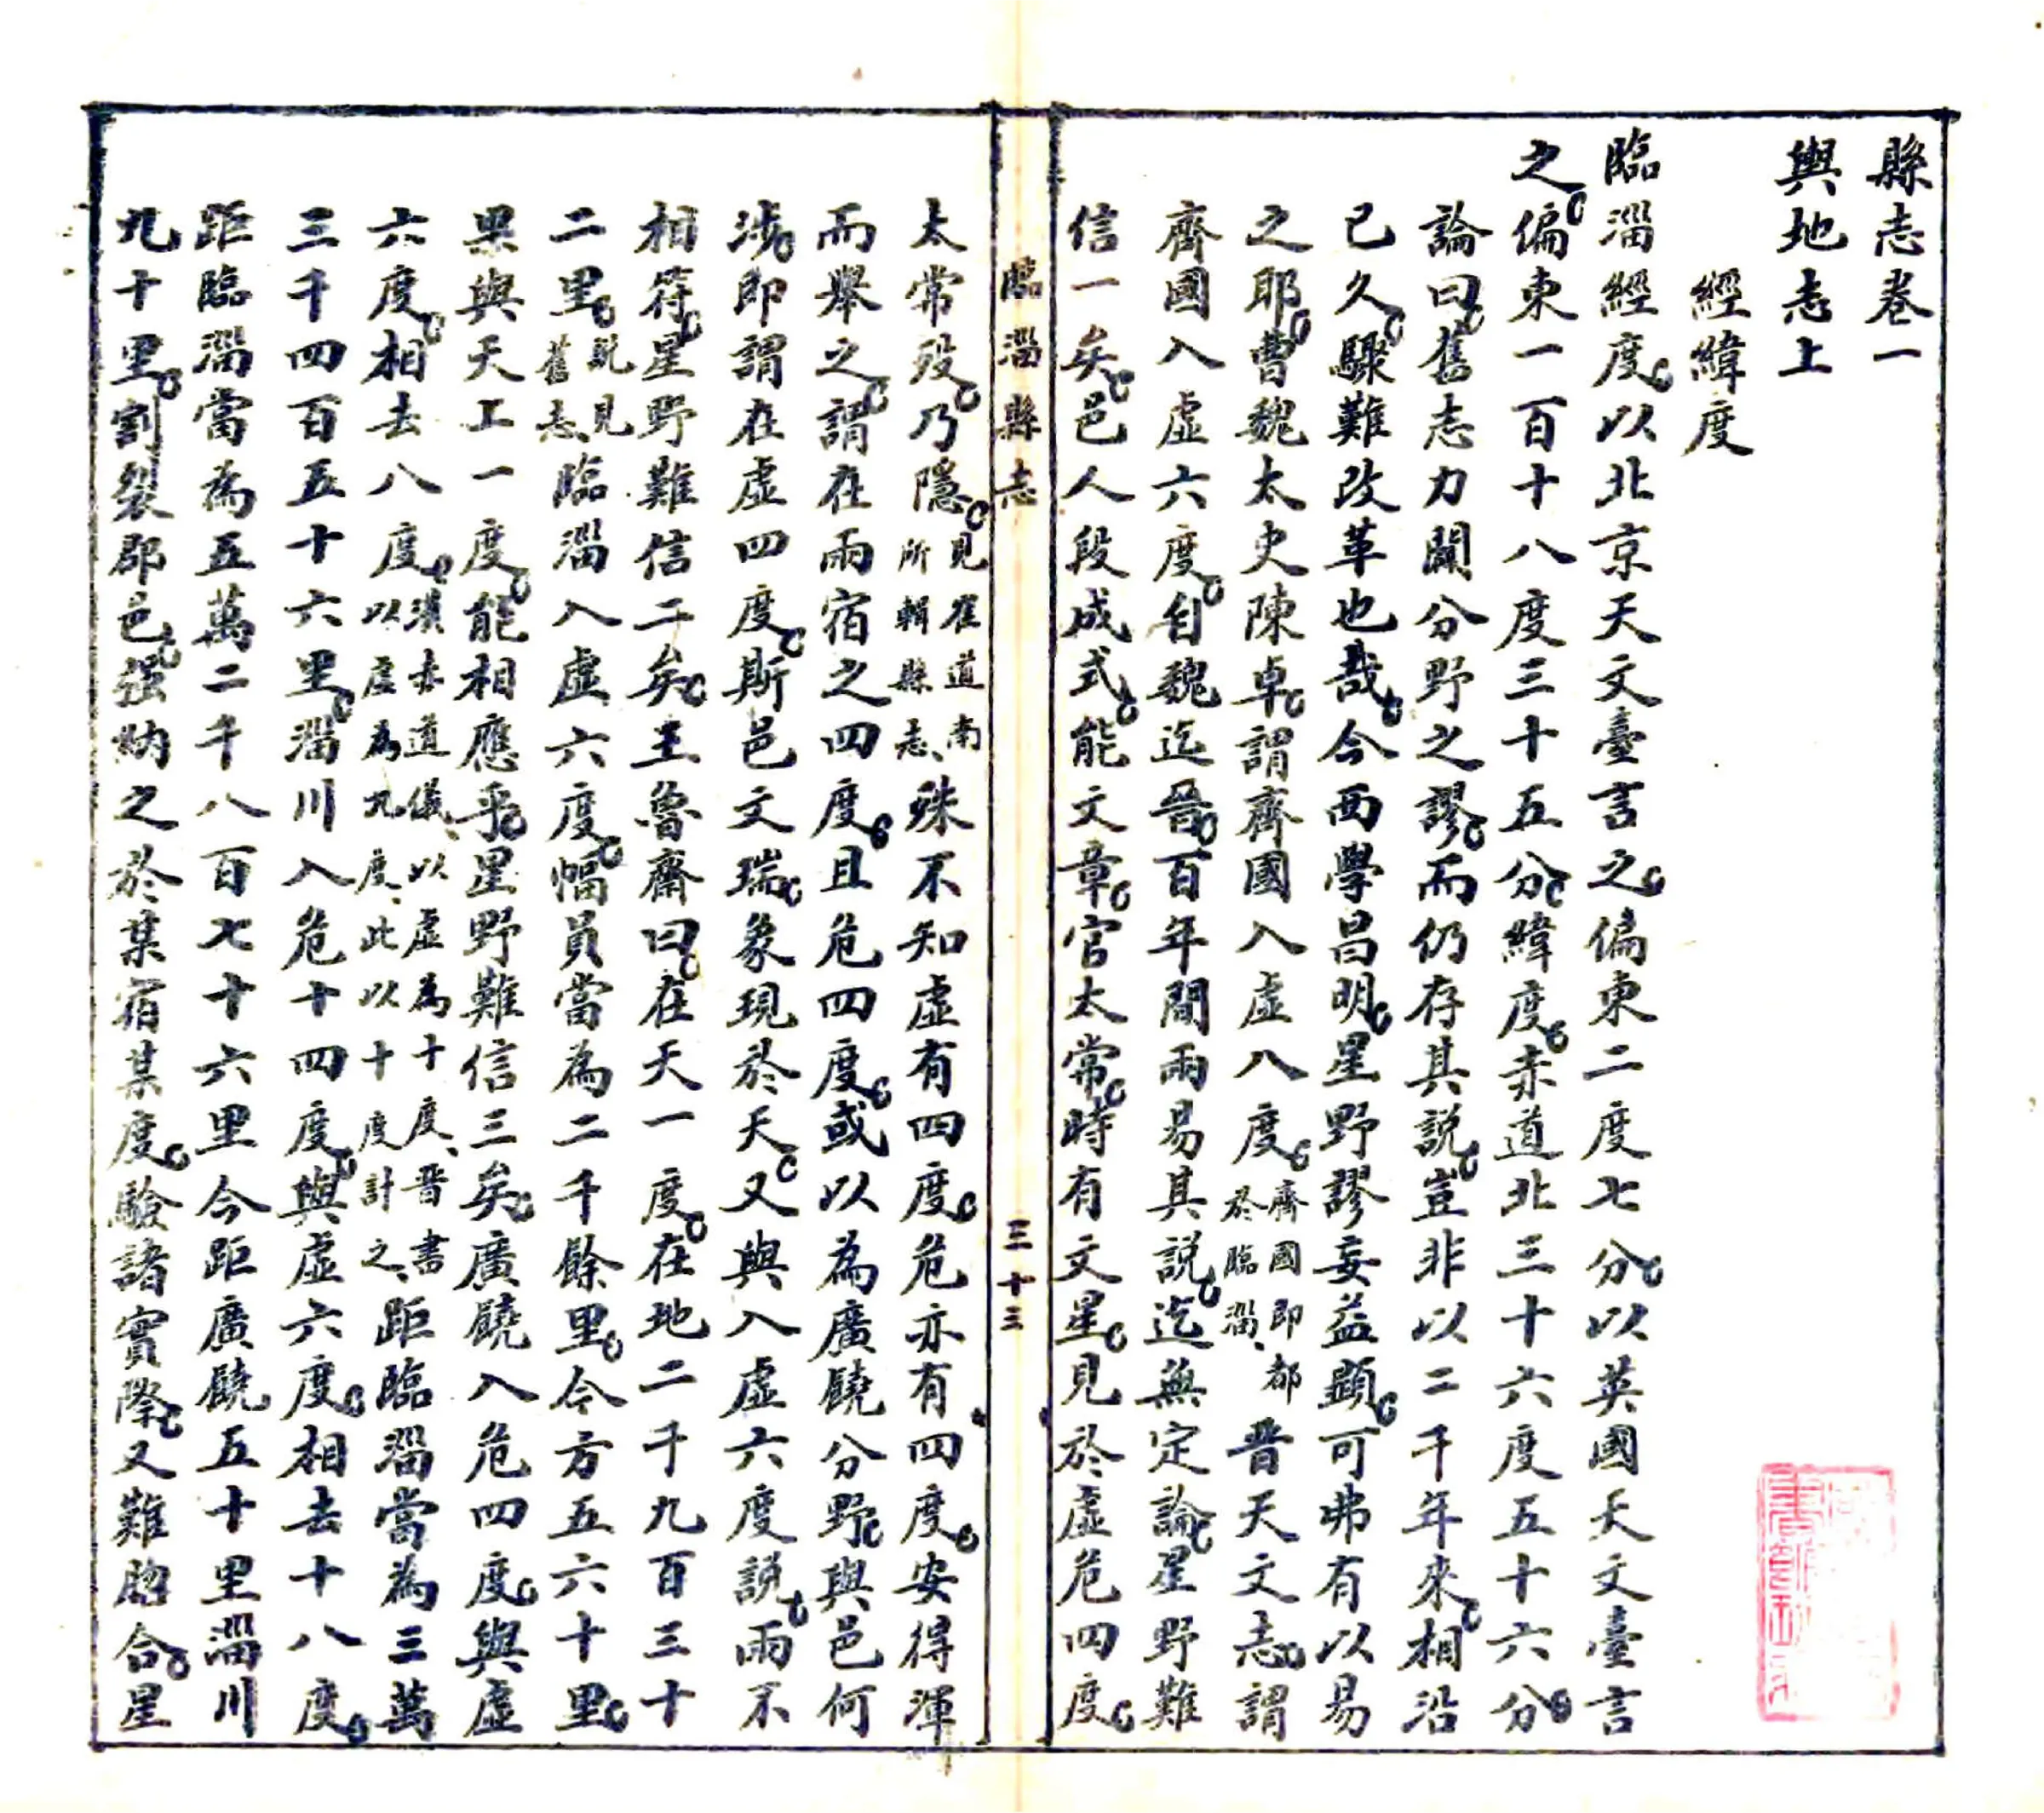 縣志卷一
輿地志上
經緯度
臨淄經度以北京天文臺言之偏東二度七分以英國天文臺言
之偏東一百十八度三十五分緯度赤道北三十六度五十六分
論曰舊志力闢分野之謬而仍存其説豈非以二千年來相沿
已久驟難改革也哉今西學昌明星野謬妄益顯可弗有以易
之耶曹魏太史陳卓謂齊國入虛八度齊國即都於臨淄、晋天文志謂
齊國入虛六度自魏迄晉百年間兩易其説迄無定論星野難
信一矣邑人段成式能文章官太常時有文星見於虛危四度
臨淄縣志 三十三
太常歿乃隱見崔道南所輯縣志、殊不知虛有四度危亦有四度安得渾
而舉之謂在兩宿之四度且危四度或以為廣饒分野與邑何
涉即謂在虛四度斯邑文瑞象現於天又與入虛六度説兩不
相符星野難信二矣王魯齋曰在天一度在地二千九百三十
二里説見舊志、臨淄入虛六度幅員當為二千餘里今方五六十里
果與天工一度能相應乎星野難信三矣廣饒入危四度與虛
六度相去八度漢赤道儀、以虛為十度、晋書以虛為九度、此以十度計之、距臨淄當為三萬
三千四百五十六里淄川入危十四度與虛六度相去十八度
距臨淄當為五萬二千八百七十六里今距廣饒五十里淄川
九十里割裂郡邑強納之於某宿某度驗諸實際又難脗合星